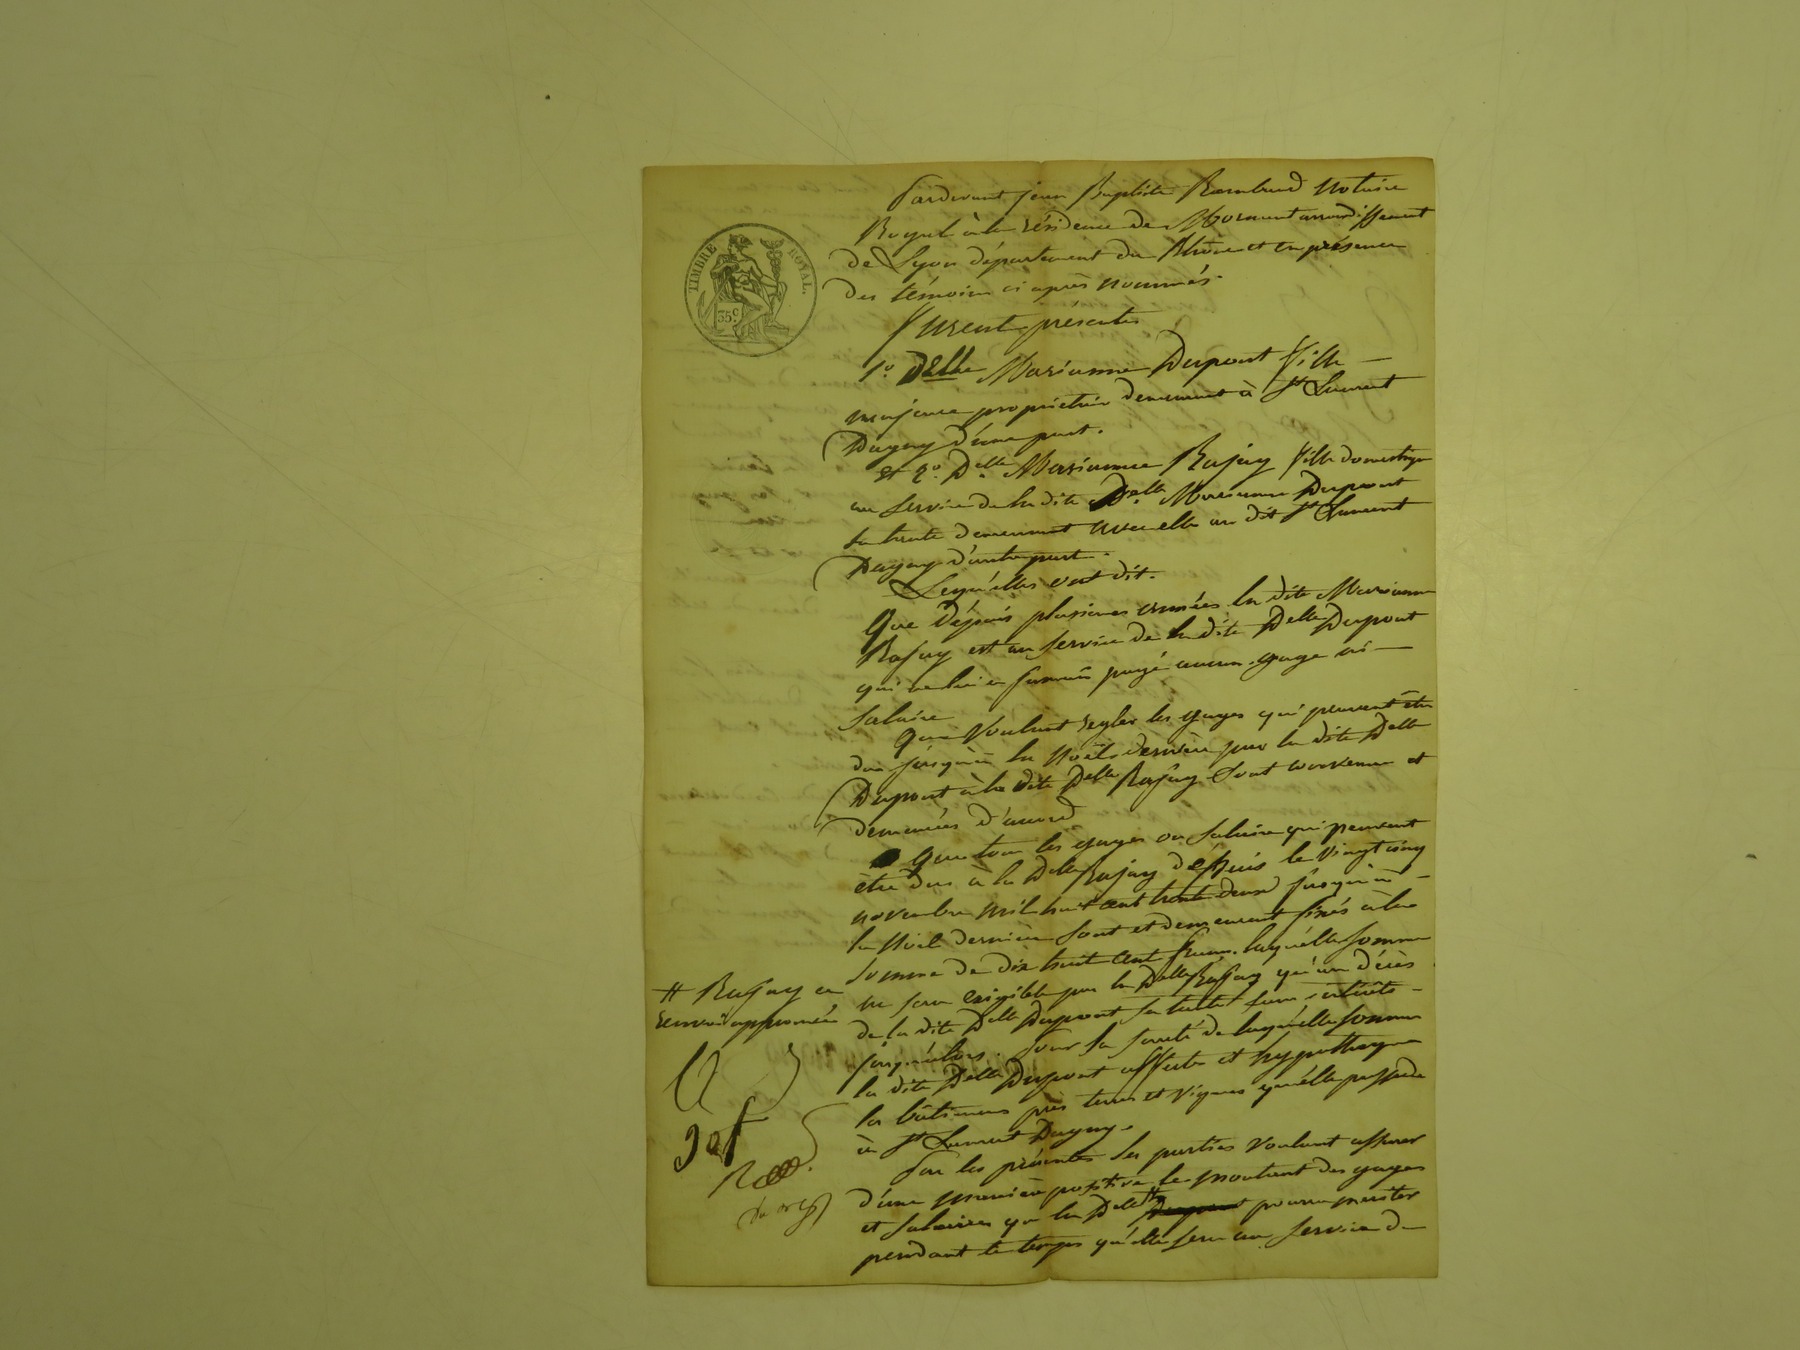 TIMBRE ROYAL.
35c
Pardevant jean Baptiste Rambaud Notaire
Royal à la résidence de Mornant arrondissement
de Lyon département du Rhône et en présence
des témoins ci après nommés
furent présentes
1o. Delle Marianne Dupont fille
majeure propriétaire demeurant à St Laurent
Dagny d'une part.
et 2o. Delle Marianne Rajay fille domestique
au service de la dite Delle Marianne Dupont
sa tante demeurant avec elle au dit St Laurent
Dagny d'autre part.
Lesquelles ont dit.
Que dépuis plusieurs années la dite Marianne
Rajay est au service de la dite Delle Dupont
qui ne lui a jamais payé aucun gage ni
salaire
Que voulant regler les gages qui peuvent être
dus jusqu'à la Noël dernière par la dite Delle
Dupont à la dite Delle Rajay sont convenues et
demeurées d'accord
Que tous les gages ou salaires qui peuvent
être dus à la Delle Rajay dépuis le vingt cinq
novembre mil huit cent trente deux jusqu'à
la Noël dernière sont et demeurent fixés à la
somme de dix huit cent francs laquelle somme
ne sera exigible par la Delle Rajay qu'au décès
de la dite Delle Dupont sa tante sans intérêts
jusqu'alors. Pour sureté de laquelle somme
la dite Delle Dupont affecte et hypothèque
les bâtimens prés terres et vignes qu'elle possede
à St Laurent Dagny.
Par les présentes les parties voulant assurer
d'une manière positive le montant des gages
et salaires que la Delle # pourra mériter
pendant le temps qu'elle sera au service de
# Rajay
renvoi approuvé